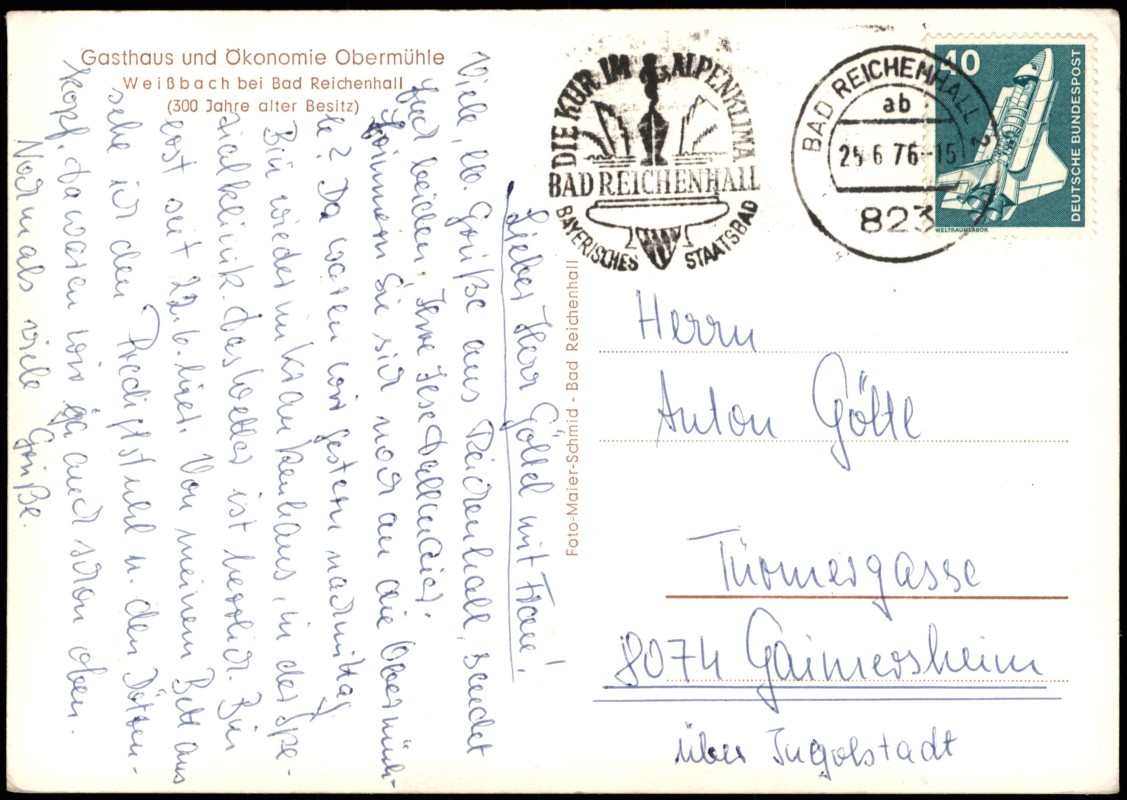 Gasthaus und Ökonomie Obermühle
Weißbach bei Bad Reichenhall
(300 Jahre alter Besitz)
Lieber Herr Göltel mit Frau!
Viele, lb. Grüße aus Reichenhall, sendet
Euch beiden, Ihre
Können Sie sich noch an die Obermüh-
le? Da waren wir gestern nachmittag.
Bin wieder im Krankenhaus, in der Spe-
zialklinik. Das Wetter ist herrlich. Bin
erst seit 22.6. hier. Von meinem Bett aus
sehe ich den Predigtstuhl u. den Dötzen-
kopf, da waren wir ja auch schon oben.
Nochmals viele Grüße.
Foto-Maier-Schmid - Bad Reichenhall
DIE KUR IM ALPENKLIMA
BAD REICHENHALL
BAYERISCHES STAATSBAD
BAD REICHENHALL
ab
25.6.76-15
823
40
DEUTSCHE BUNDESPOST
WELTRAUMLABOR
Herrn
Anton Göltl
Türmergasse
8074 Gaimersheim
über Ingolstadt